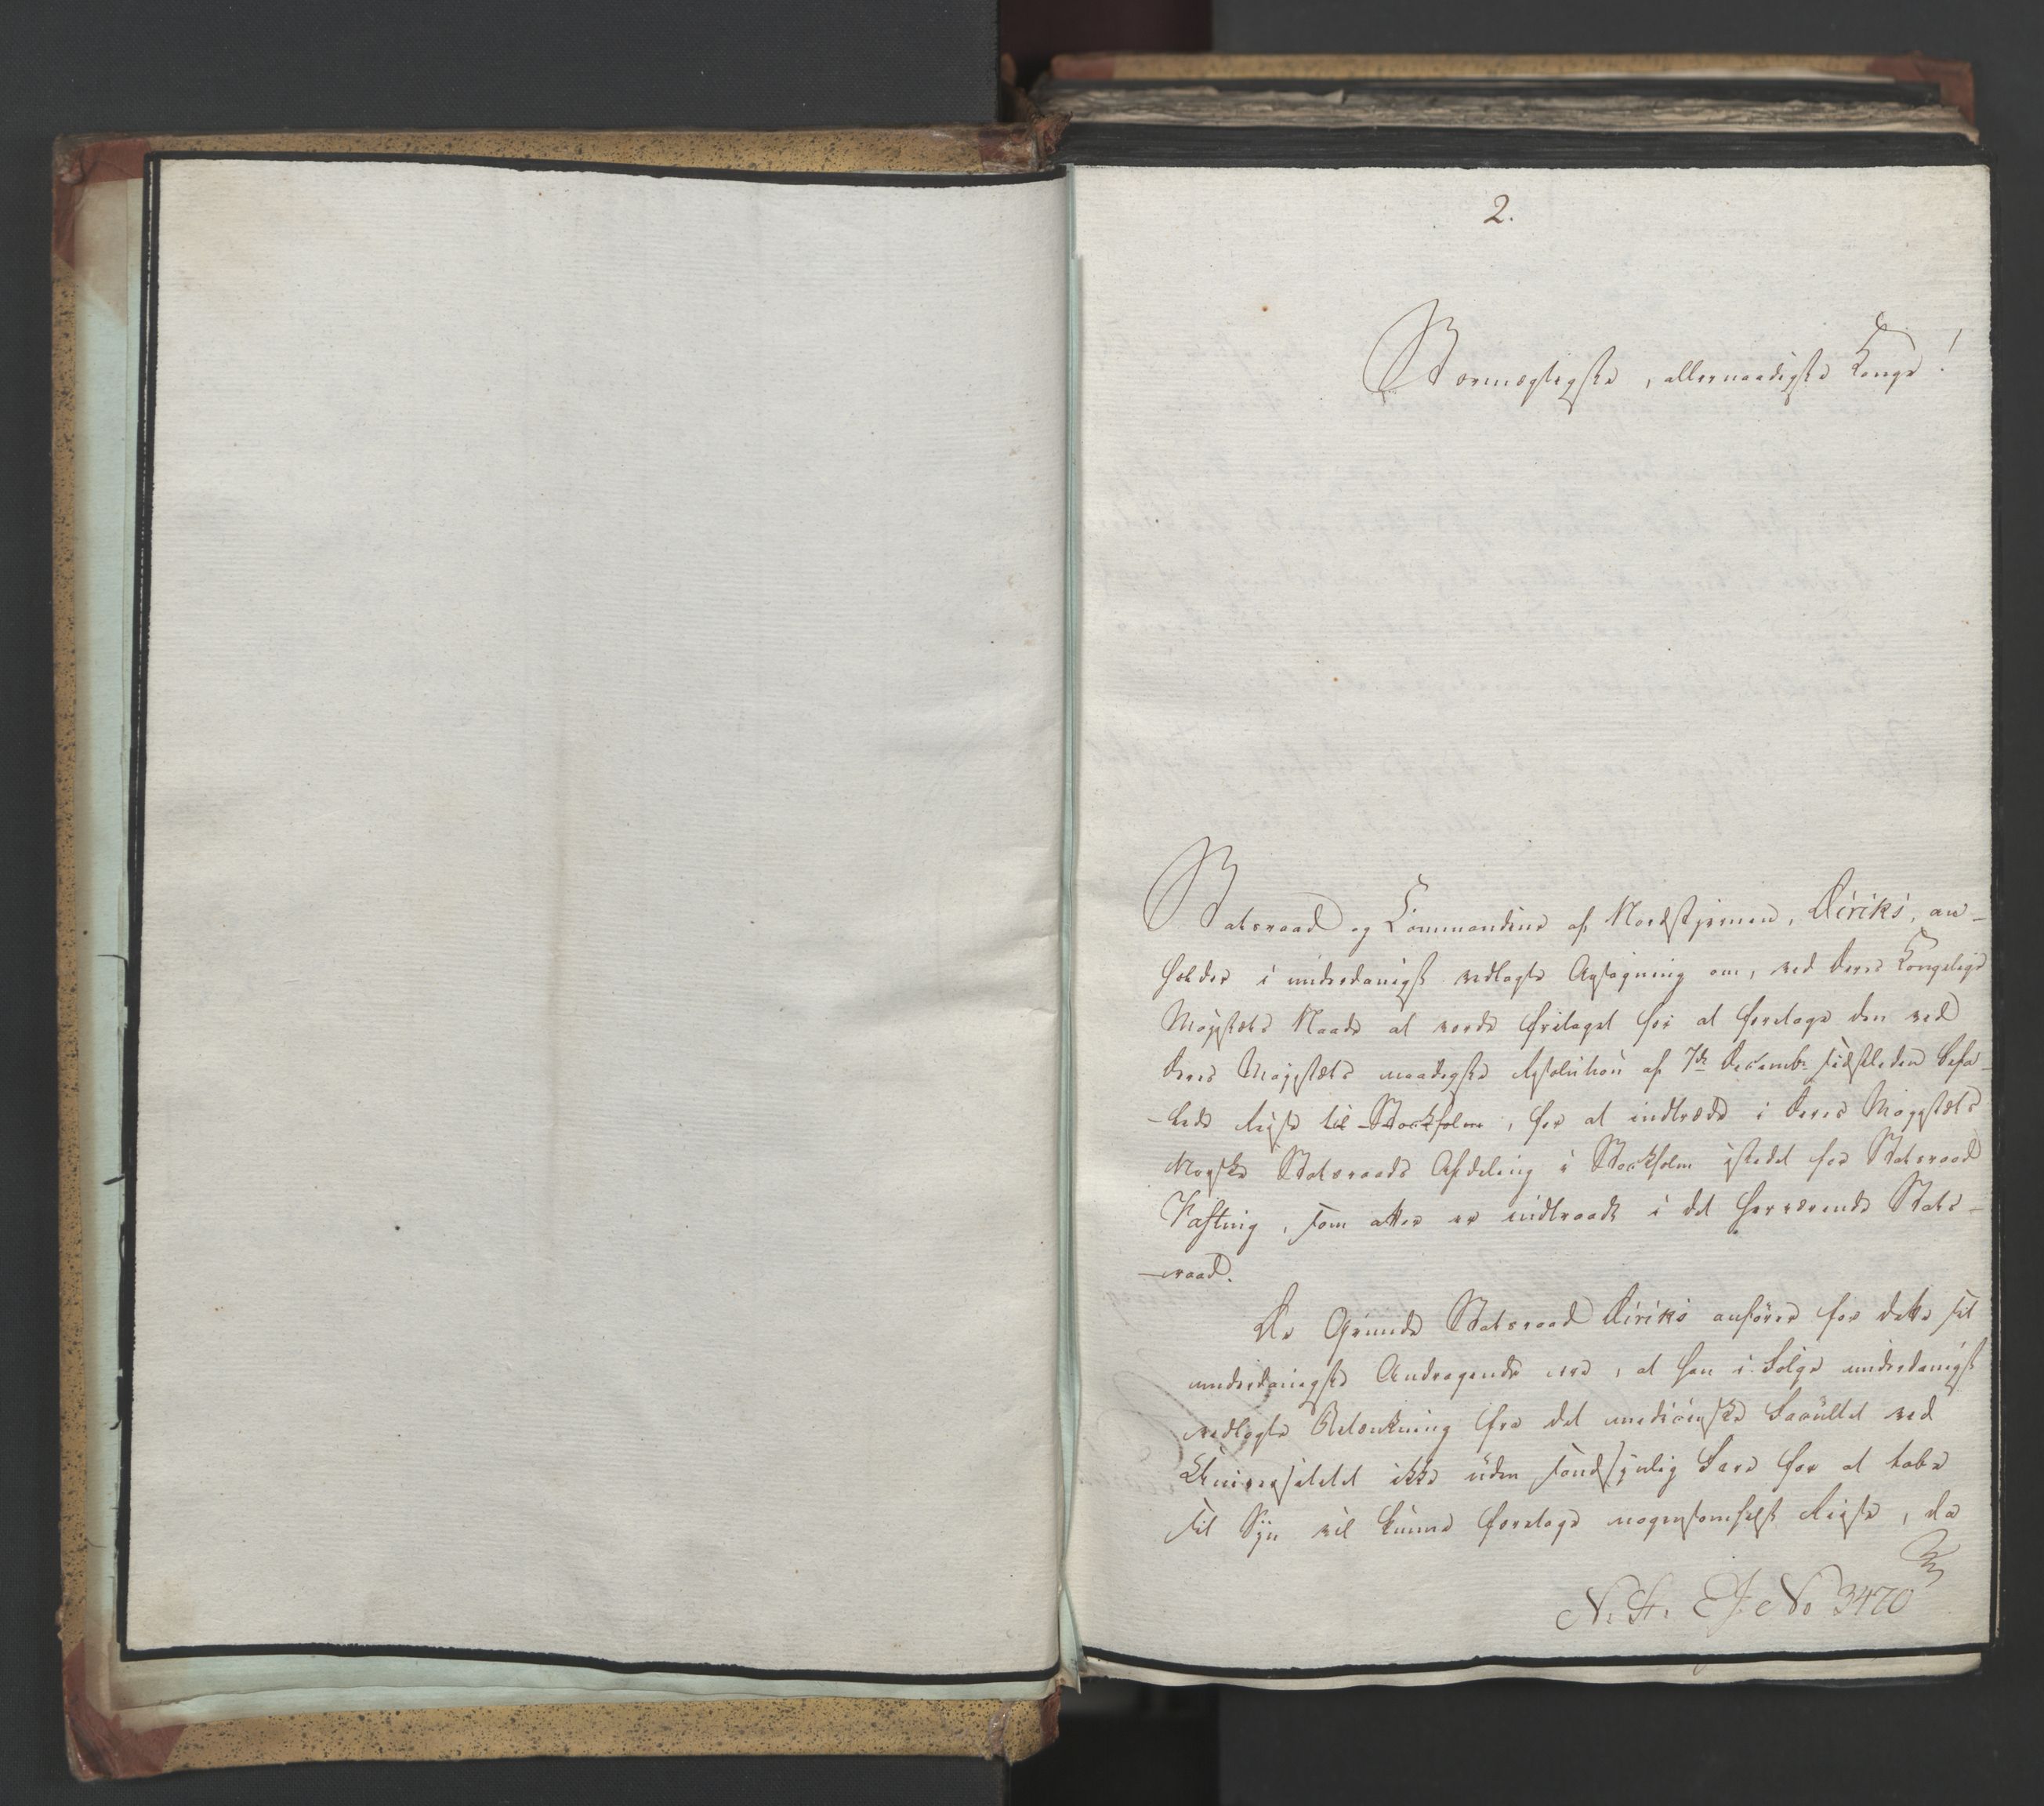 2.
Stormægtigste, allernaadigste Konge!
Statsraad og Commandeur af Nordstjernen, Diriks, an-
holder i underdanigst vedlagte Ansøgning om, ved Deres Kongelige
Majestæts Naade at vorde fritaget for at foretage den ved
Deres Majestæts naadigste Resolution af 7de Decembr sidstleden befa-
-lede Reise til Stockholm, for at indtræde i Deres Majestæts
Norske Statsraads Afdeling i Stockholm istedet for Statsraad
Fasting, som atter er indtraadt i det herværende Stats-
-raad.
De Grunde Statsraad Diriks anfører for dette sit
underdanigste Andragende ere, at han i Følge underdanigst
vedlagte Betænkning fra det medicinske Facultet ved
Universitetet ikke uden sandsynlig Fare for at tabe
sit Syn vil kunne foretage nogensomhelst Reise, da
N. St. E. J. No 3470